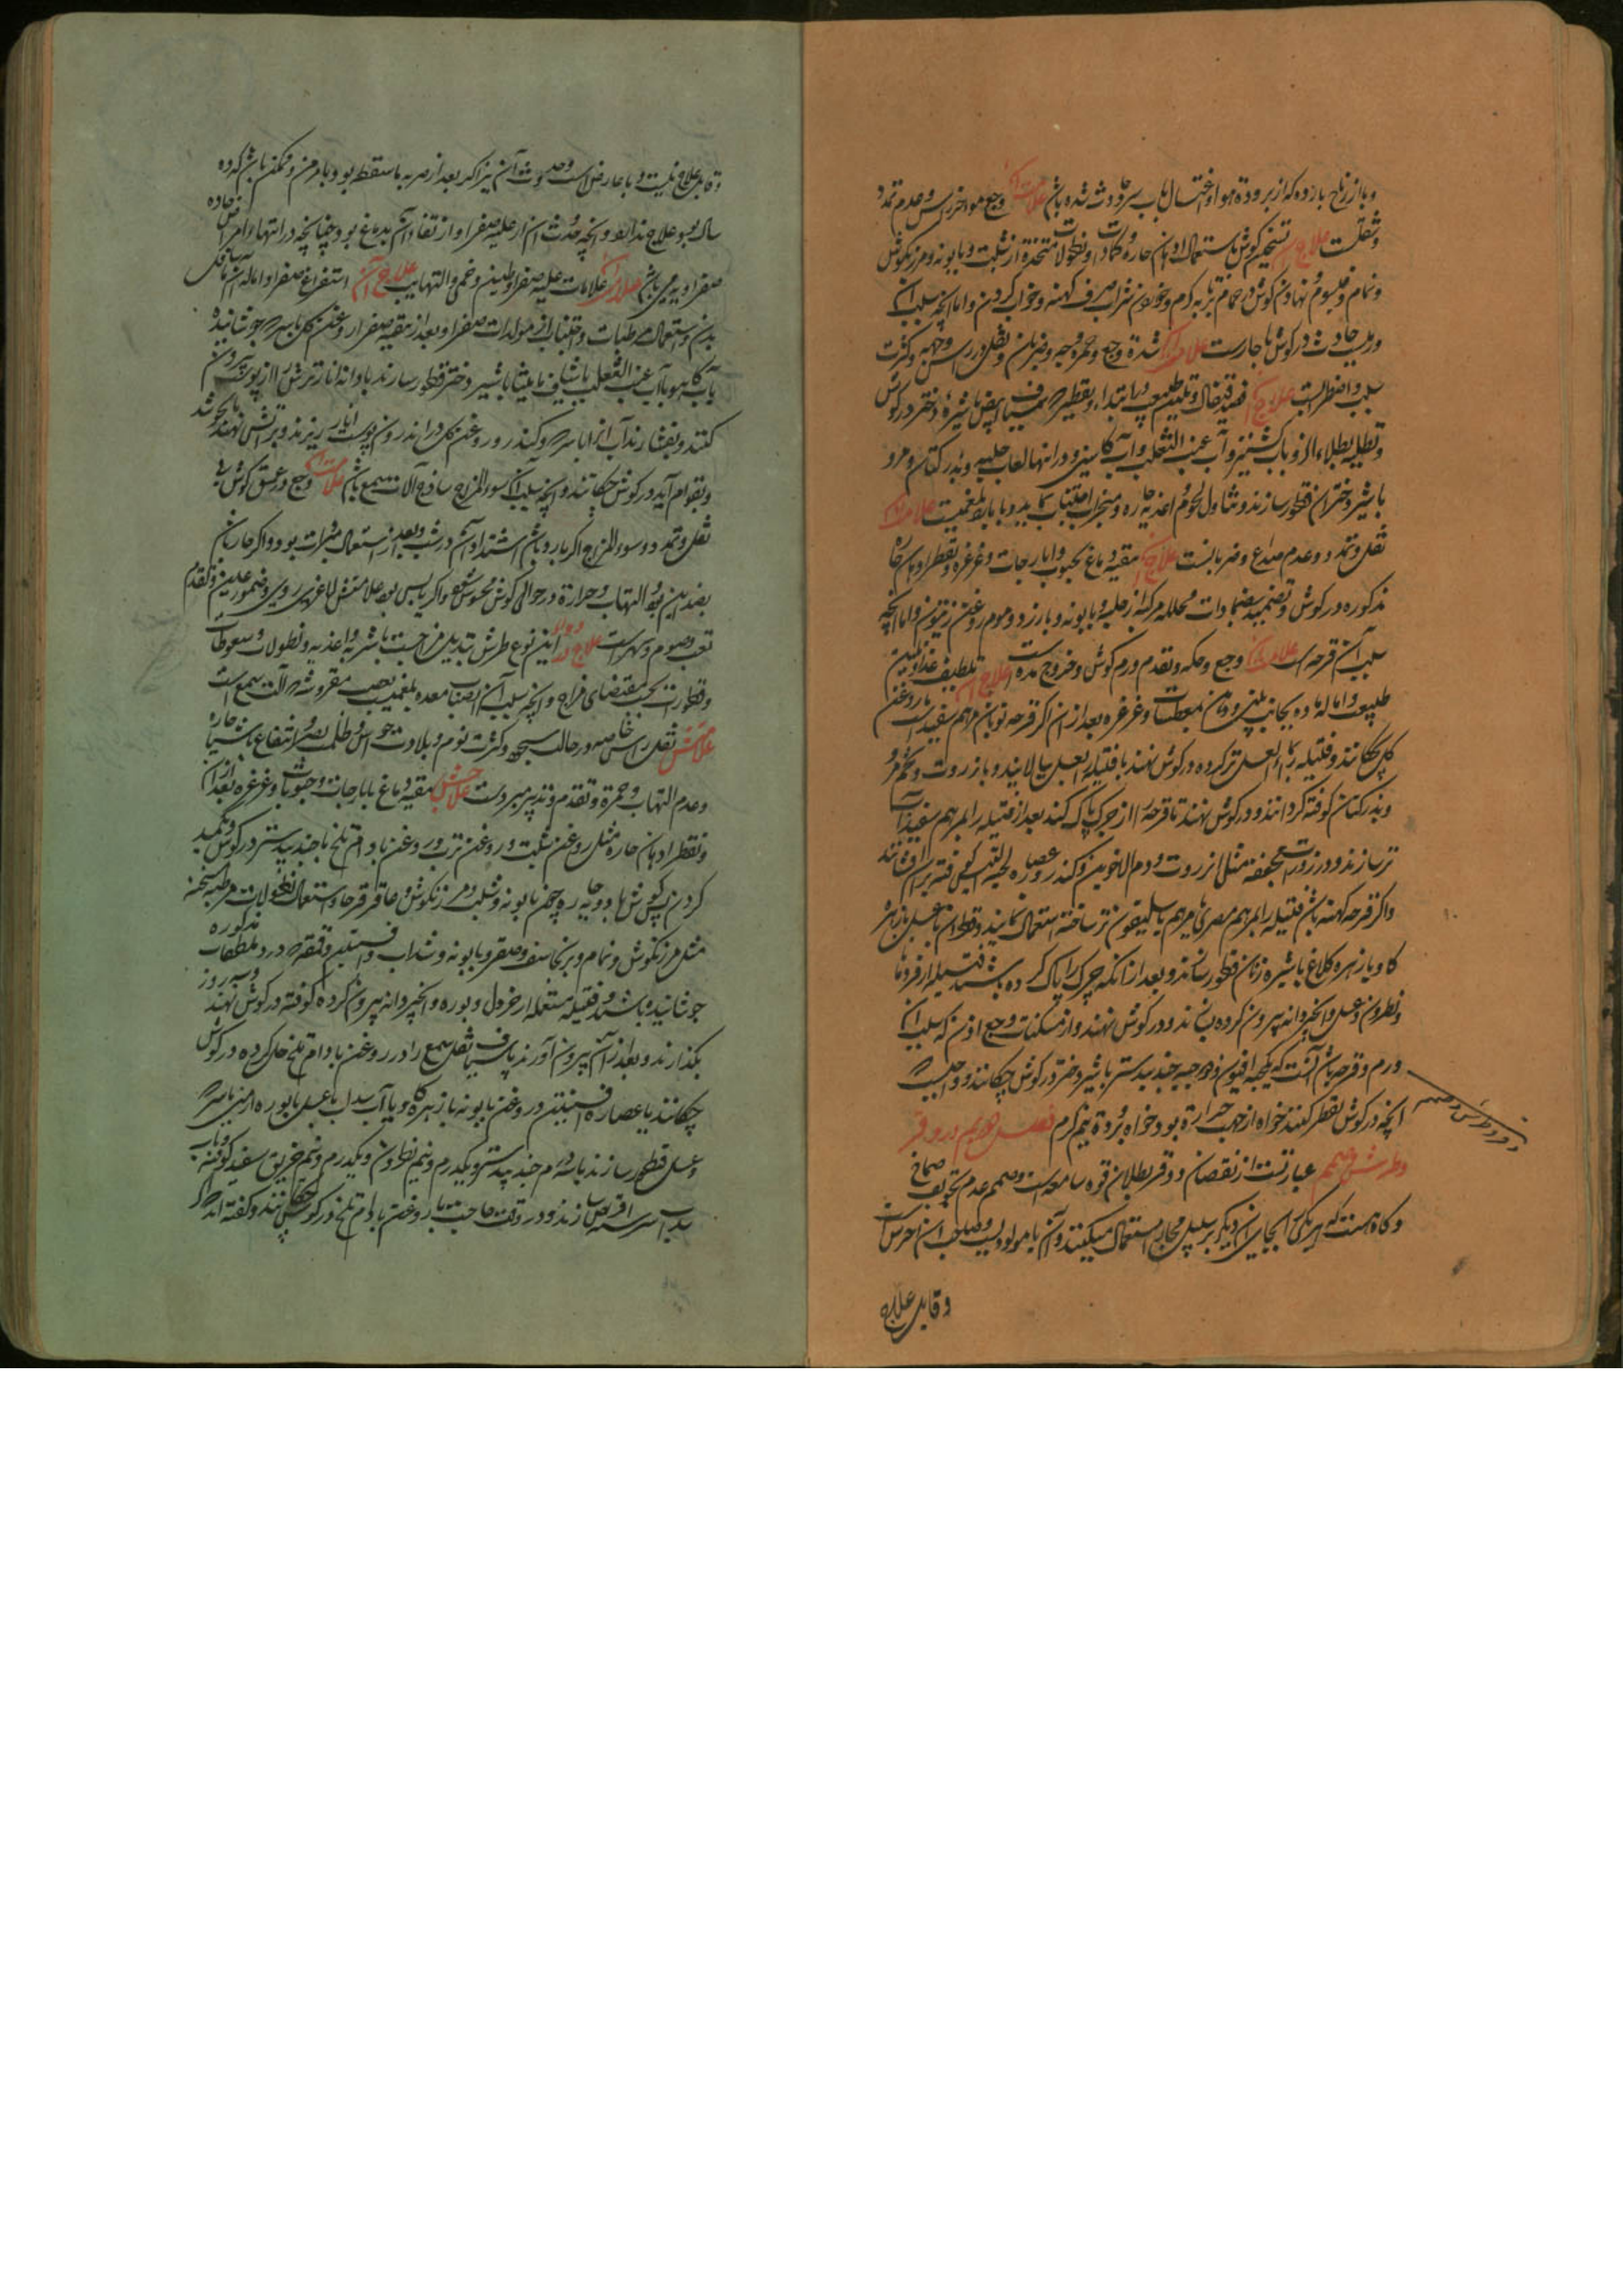 و یا از ریاح بارده که از برودة هوا و اغتسال بآب سرد حادث شده باشد علامت آن وجع مواخر راس و عدم تمدد
و ثقلست علاج تسخین گوش باستعمال ادهان حاره و کمادات و نطولات متخذه از شبت و بابونه و مرزنگوش
و نمام و نهادن گوش در حمام بر تابه گرم و خوردن شراب صرف کهنه و خواب کردن و اما انچه سبب آن
ورمیست حادث در گوش یا حارست علامت آن شدة وجع و حمرة وجه و ضربان و ثقل در راس و جهه و کثرت
و اضطرابست علاج آن فصد قیفال و تلیین طبیعت در ابتداء و تقطیر شیاف ابیض با شیره دختر در گوش
و تطلیه بطلاء و آب کشنیز و آب عنب الثعلب و آب کاسنی و در انتها لعاب حلبه و بذر کتان و مرو
با شیر دختران قطور سازند و تناول لحوم اغذیه حاره و مبخرات اجتناب نمایند و یا بارد بلغمیست علامت آن
ثقل و تمدد و عدم صداع و ضربانست علاج آن تنقیه دماغ بحبوب و ایارجات و غرغره و تقطیر ادهان حاره
مذکوره در گوش و تضمید بضمادات محلله مرکبه از حلبه و بابونه و بارزد و موم روغن زیتون و اما انچه
سبب آن قرحه است علامت آن وجع و حکه و تقدم ورم گوش و خروج مده است علاج آن تلطیف غذا و تلیین
طبیعت و اماله ماده بجانب بینی و دهان بمعطسات و غرغره بعد از ان اگر قرحه نو باشد مرهم سفیداب با روغن
گل چکانند و فتیله بماء العسل تر کرده در گوش نهند یا فتیله بعسل بیالایند و بانزروت و تخم مرو
و بذر کتان کوفته گردانند و در گوش نهند تا قرحه را از چرک پاک کند بعد از ان فتیله را بمرهم سفیداب
تر سازند و ذرورات مجففه مثل انزروت و دم الاخوین و کندر و عصاره لحیة التیس کوفته بران افشانند
و اگر قرحه کهنه باشد فتیله را بمرهم مصری یا مرهم باسلیقون تر ساخته استعمال نمایند و قطران با عسل یا زهره
گاو یا زهره کلاغ با شیره زنان قطور سازند و بعد از انکه چرک را پاک کرده باشند فتیله از قردمانا
و نطرون و عسل و انجیر دانه بیرون کرده بسازند و در گوش نهند و از مسکنات وجع اذن که سبب آن
ورم و قرحه باشد آنست که یکحبه افیون و دو حبه جندبیدستر با شیر دختر در گوش چکانند و واجبست که
انچه در گوش تقطیر کنند خواه از جهت حرارة بود و خواه برودة نیم گرم فصل دویم در وقر
و طرش و صمم عبارتست از نقصان و وقر بطلان قوه سامعه است و صمم عدم تجویف صماخ
و گاه هست که هر یکی بجای آن دیگر بر سبیل مجاز استعمال میکنند و آن یا مولودیست و صاحب آن اخرس است
و قابل علاج
در وقر و طرش و صمم
و قابل علاج نیست و یا عارض است و حدوث آن نیز اگر بعد از ضربه یا سقطه بود و یا مزمن و متمکن باشد که ده
سال بود علاج ندارد و انچه حدوث آن از غلبه صفرا و ارتقاء آن بدماغ بود چنانچه در انتهاء امراض حاده
صفراویه می باشد علامت آن علامات غلبه صفرا و طنین و حمی و التهابست علاج آن استفراغ صفرا و اماله آن باسافل
بدن و استعمال مرطبات و اجتناب از مولدات صفرا و بعد از تنقیه صفرا روغن گل با سرکه جوشانیده
یا آب کاهو یا آب عنب الثعلب یا شیاف مامیثا با شیر دختر قطور سازند یا دانه انار ترش را از پوست بیرون
کنند و بفشارند آب آنرا با سرکه و کندر و روغن گل در اندرون پوست انار ریزند و بر آتش نهند تا بجوشد
و بقوام آید در گوش چکانند و انچه سبب آن سوء المزاج ساذج آلات سمع باشد علامت آن وجع در عمق گوش بی
ثقل و تمدد و سوء المزاج اگر بارد باشد اشتداد آن در شب و بعد از استعمال مبردات بود و اگر حار باشد
بضد این بود و التهاب و حرارة در حوالی گوش محسوس شود و اگر یابس بود علامتش لاغری روی و ضمور عین و تقدم
تعب و صوم و سهر است علاج این نوع طرش تبدیل مزاجست باشربه و اغذیه و نطولات و سعوطات
و قطورات بحسب مقتضای مزاج و انچه سبب آن انصباب مده بلغمیست بعصب مفروش در آلت سمع است
علامتش ثقل راس خاصه در حالت سجده و کثرت نوم و بلادت حواس و ظلمت بصر و انتفاع باشیاء حاره
و عدم التهاب و حمرة و تقدم تدبیر مبردست علاجش تنقیه دماغ بایارجات و حبوبات و غرغره بعد از ان
و تقطیر ادهان حاره مثل روغن شبت و روغن ترب و روغن بادام تلخ با جندبیدستر در گوش و تکمید
کردن گوش ها بادویه حاره چون بابونه و شبت و مرزنگوش و عاقرقرحا و استعمال نطولات مرطبه مسخنه
مثل مرزنگوش و نمام و برنجاسف و صعتر و بابونه و سداب و افسنتین و فتیله که در ملطفات مذکوره
جوشانیده باشند و فتیله مستعمله از خردل و بوره و انجیر دانه بیرون کرده کوفته در گوش نهند و سه روز
بگذارند و بعد از آن بیرون آورند یا شیاف ثقل سمع را در روغن بادام تلخ حل کرده در گوش
چکانند یا عصاره افسنتین در روغن بابونه یا زهره گاو یا آب سداب با عسل یا بوره ارمنی با سرکه
و عسل قطور سازند یا سه درم جندبیدستر و یکدرم و نیم نطرون و یکدرم و نیم خربق سفید کوفته و بآب
سداب سرشته اقراص سازند و در وقت حاجت با روغن بادام تلخ در گوش چکانند و گفته اند که